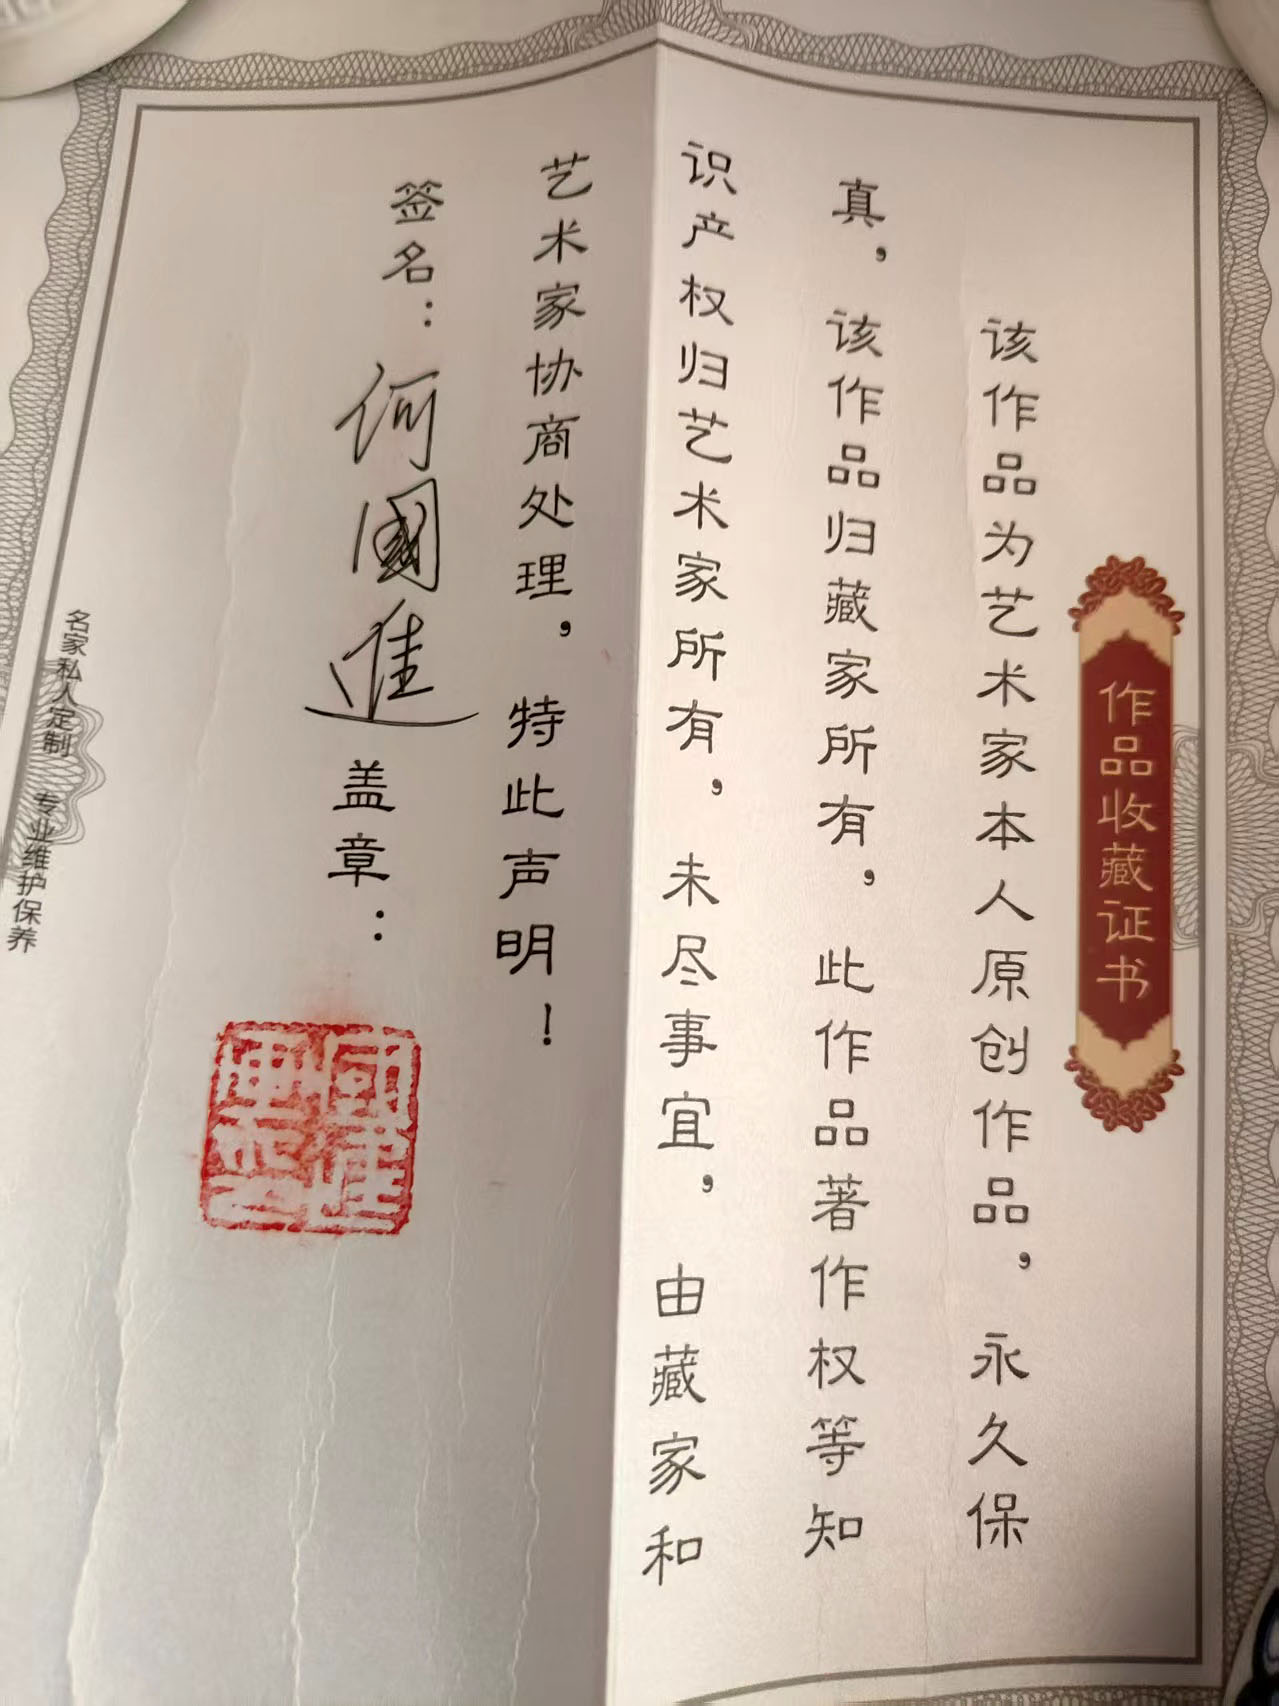 作品收藏证书
该作品为艺术家本人原创作品，永久保
真，该作品归藏家所有，此作品著作权等知
识产权归艺术家所有，未尽事宜，由藏家和
艺术家协商处理，特此声明！
签名：何國進 盖章：
名家私人定制 专业维护保养